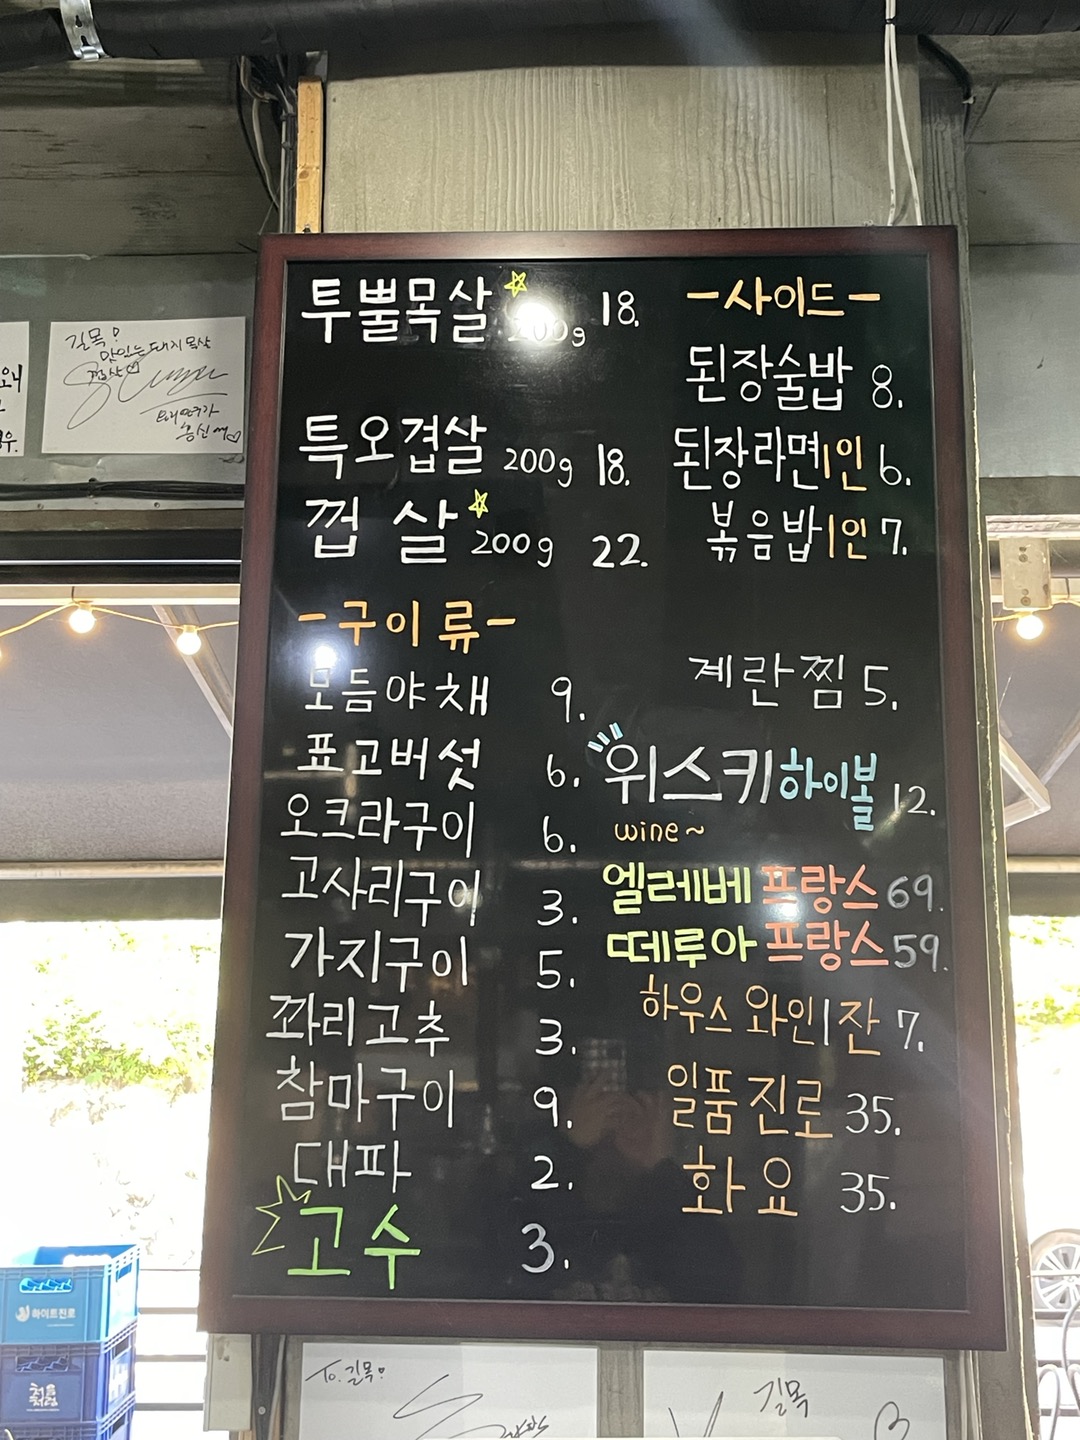 투뿔목살 200g 18.
특오겹살 200g 18.
껍 살 200g 22.
-구이류-
모듬야채 9.
표고버섯 6.
오크라구이 6.
고사리구이 3.
가지구이 5.
꽈리고추 3.
참마구이 9.
대파 2.
고수 3.
-사이드-
된장술밥 8.
된장라면1인 6.
볶음밥1인 7.
계란찜 5.
위스키하이볼 12.
wine~
엘레베 프랑스 69.
떼루아 프랑스 59.
하우스 와인1잔 7.
일품진로 35.
화요 35.
길목!
맛있는 돼지목살
하이트진로
처음
처럼
To. 길목!
길목